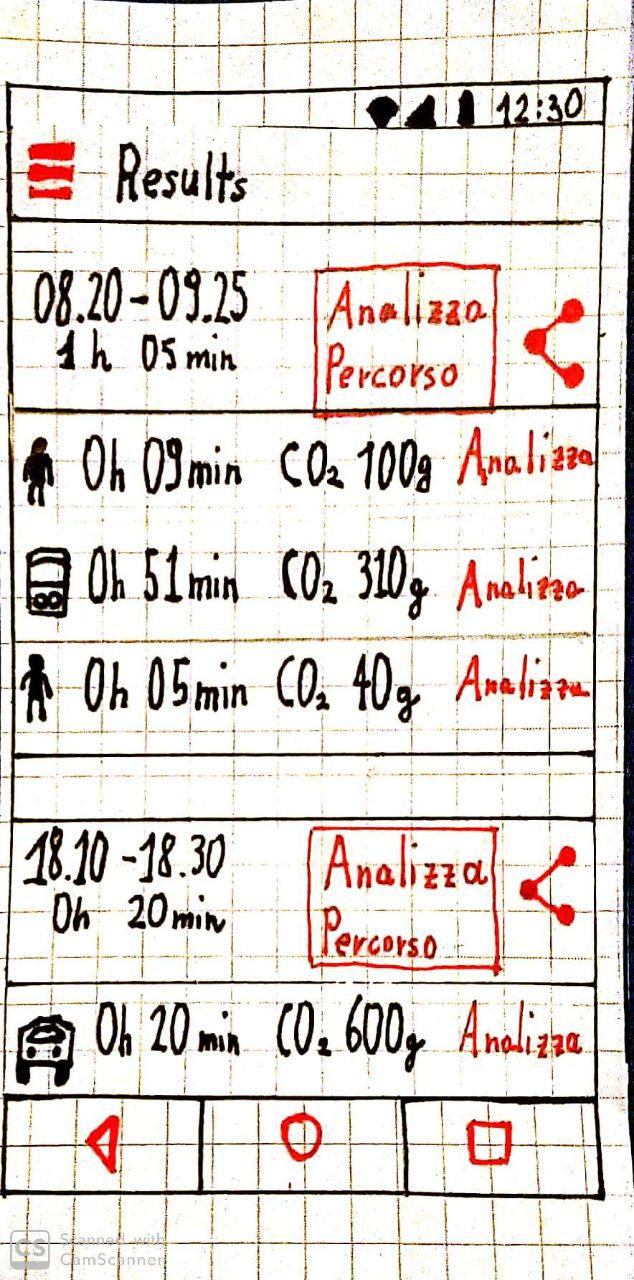 12:30
Results
08.20-09.25
1 h 05 min
Analizza
Percorso
0h 09min CO₂ 100g Analizza
0h 51min CO₂ 310g Analizza
0h 05min CO₂ 40g Analizza
18.10-18.30
0h 20min
Analizza
Percorso
0h 20 min CO₂ 600g Analizza
CS Scanned with
CamScanner